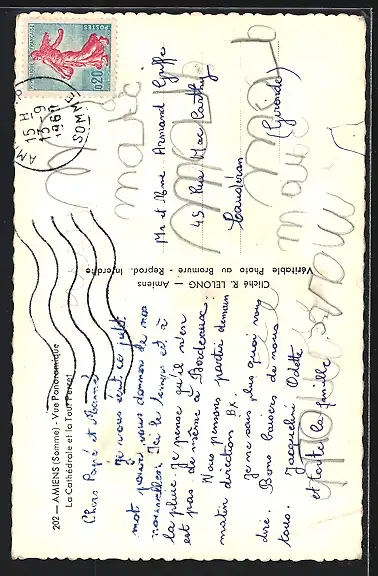 202 — AMIENS (Somme) - Vue Panoramique
La Cathédrale et la Tour Perret
Chers Papé et Mamé
Je vous écrit ce petit
mot pour vous donner de nos
nouvelles. Ici le temps est à
la pluie. Je pense qu'il n'en
est pas de même à Bordeaux.
Nous pensons partir demain
matin direction Bx.
Je ne sais plus quoi vous
dire. Bons baisers de nous
tous. Jacqueline Odette
et toute la famille
Cliché R. LELONG — Amiens
Véritable Photo au Bromure - Reprod. Interdite
POSTES
0,20
15 H
13-9
SOMME
Mr et Mme Armand Griffe
45 Rue Mac Carthy
Caudéran
(Gironde)